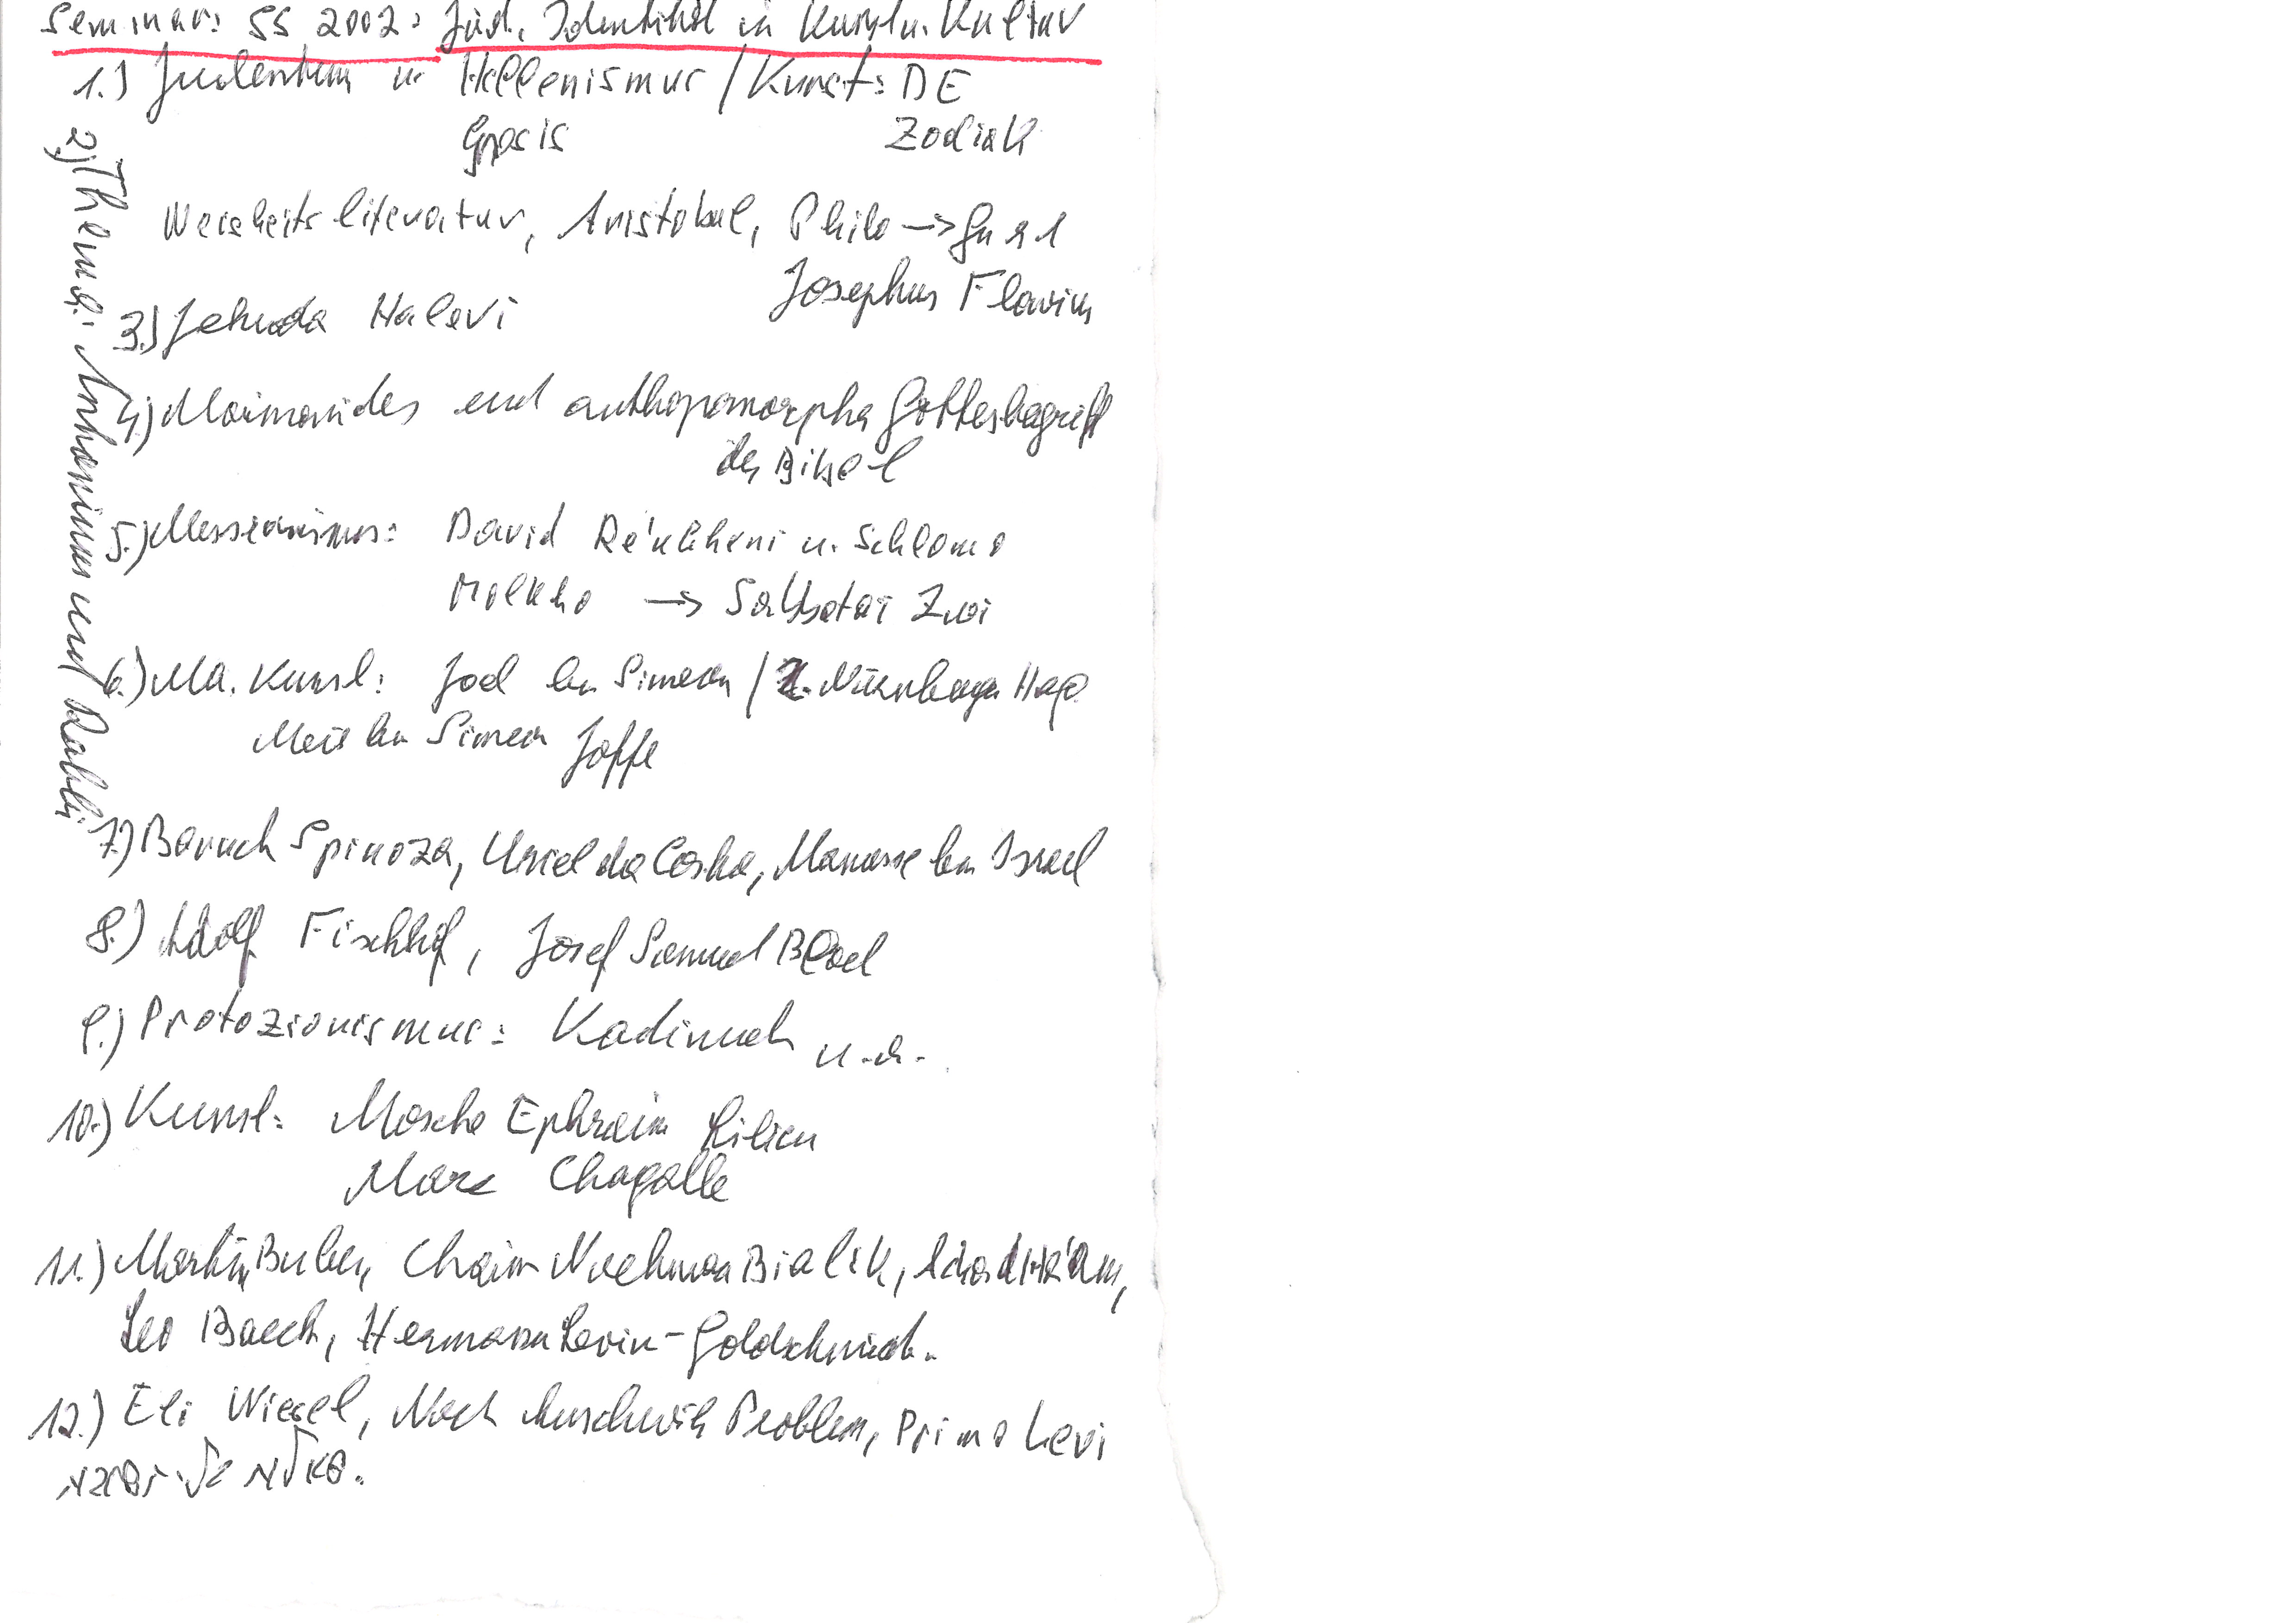 Seminar: SS 2002: Jüd. Identität in Kunst u. Kultur
1.) Judentum u. Hellenismus / Kunst: DE
Gnosis Zodiak
Weisheitsliteratur, Aristobul, Philo →
Josephus Flavius
2.) Thalmud: Antoninus und Rabbi
3.) Jehuda Halevi
4.) Maimonides und anthopomorpha Gottesbegriff
der Bibel
5.) Messianismus: David Re'ubheni u. Schlomo
Molkho → Sabbatai Zwi
6.) MA. Kunst: Joel ben Simeon / 2. Nürnberger Hag.
Meir ben Simeon Joffe
7.) Baruch Spinoza, Uriel da Costa, Manasse ben Israel
8.) Adolf Fischhof, Josef Samuel Bloch
9.) Protozionismus: Kadimah u.a.
10.) Kunst: Mosche Ephraim Lilien
Marc Chagalle
11.) Martin Buber, Chaim Nachman Bialik, Achad Ha'am,
Leo Baeck, Hermann Levin-Goldschmidt.
12.) Eli Wiesel, Nach Auschwitz Problem, Primo Levi